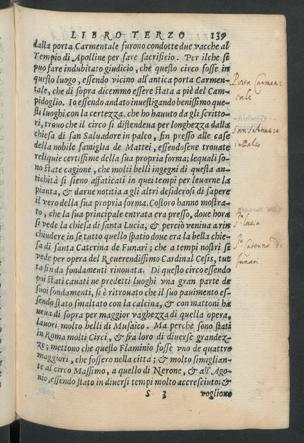 LIBRO TERZO 239
dalla porta Carmentale furono condotte due vacche al
Tempio di Apolline per fare sacrificio. Per ilche si
puo fare indubitato giudicio, che questo circo fosse in
questo luogo, essendo vicino all'antica porta Carmen-
tale, che di sopra dicemmo essere stata a piè del Cam-
pidoglio. Io essendo andato inuestigando benissimo que-
sti luoghi con la certezza, che ho hauuto da gli scritto-
ri, trouo che il circo si distendeua per longhezza dalla
chiesa di san Saluadore in palco, fin presso alle case
della nobile famiglia de Mattei, essendosene trouate
reliquie certissime della sua propria forma; lequali so-
no state cagione, che molti belli ingegni di questa an-
tichità si sieno affaticati in quei tempi per leuarne la
pianta, & darne notitia a gli altri desiderosi di sapere
il vero della sua propria forma. Costoro hanno mostra-
to, che la sua principale entrata era presso, doue hora
si vede la chiesa di santa Lucia, & perciò veniua a rin
chiudere in se tutto quello spatio doue era la bella chie-
sa di santa Caterina de Funari; che a tempi nostri si
vede per opera del Reuerendissimo Cardinal Cesis, tut
ta fin da fondamenti rinouata. Di questo circo essendo
poi stati cauati ne predetti luoghi vna gran parte de
suoi fondamenti, si è ritrouato che il suo pauimento es-
sendo stato smaltato con la calcina, & con mattoni ha
ueua di sopra per maggior vaghezza di quella opera,
lauori molto belli di Musaico. Ma perche sono stati
in Roma molti Circi, & fra loro di diuerse grandez-
ze; mettono che questo Flaminio fosse vno de quattro
maggiori, che fossero nella citta; & molto simiglian-
te al circo Massimo, a quello di Nerone, & all'Ago-
nio, essendo stato in diuersi tempi molto accresciuto: &
S 3 vogliono
Porta Carmen
tale
S. Lucia
S. Caterina de
funari